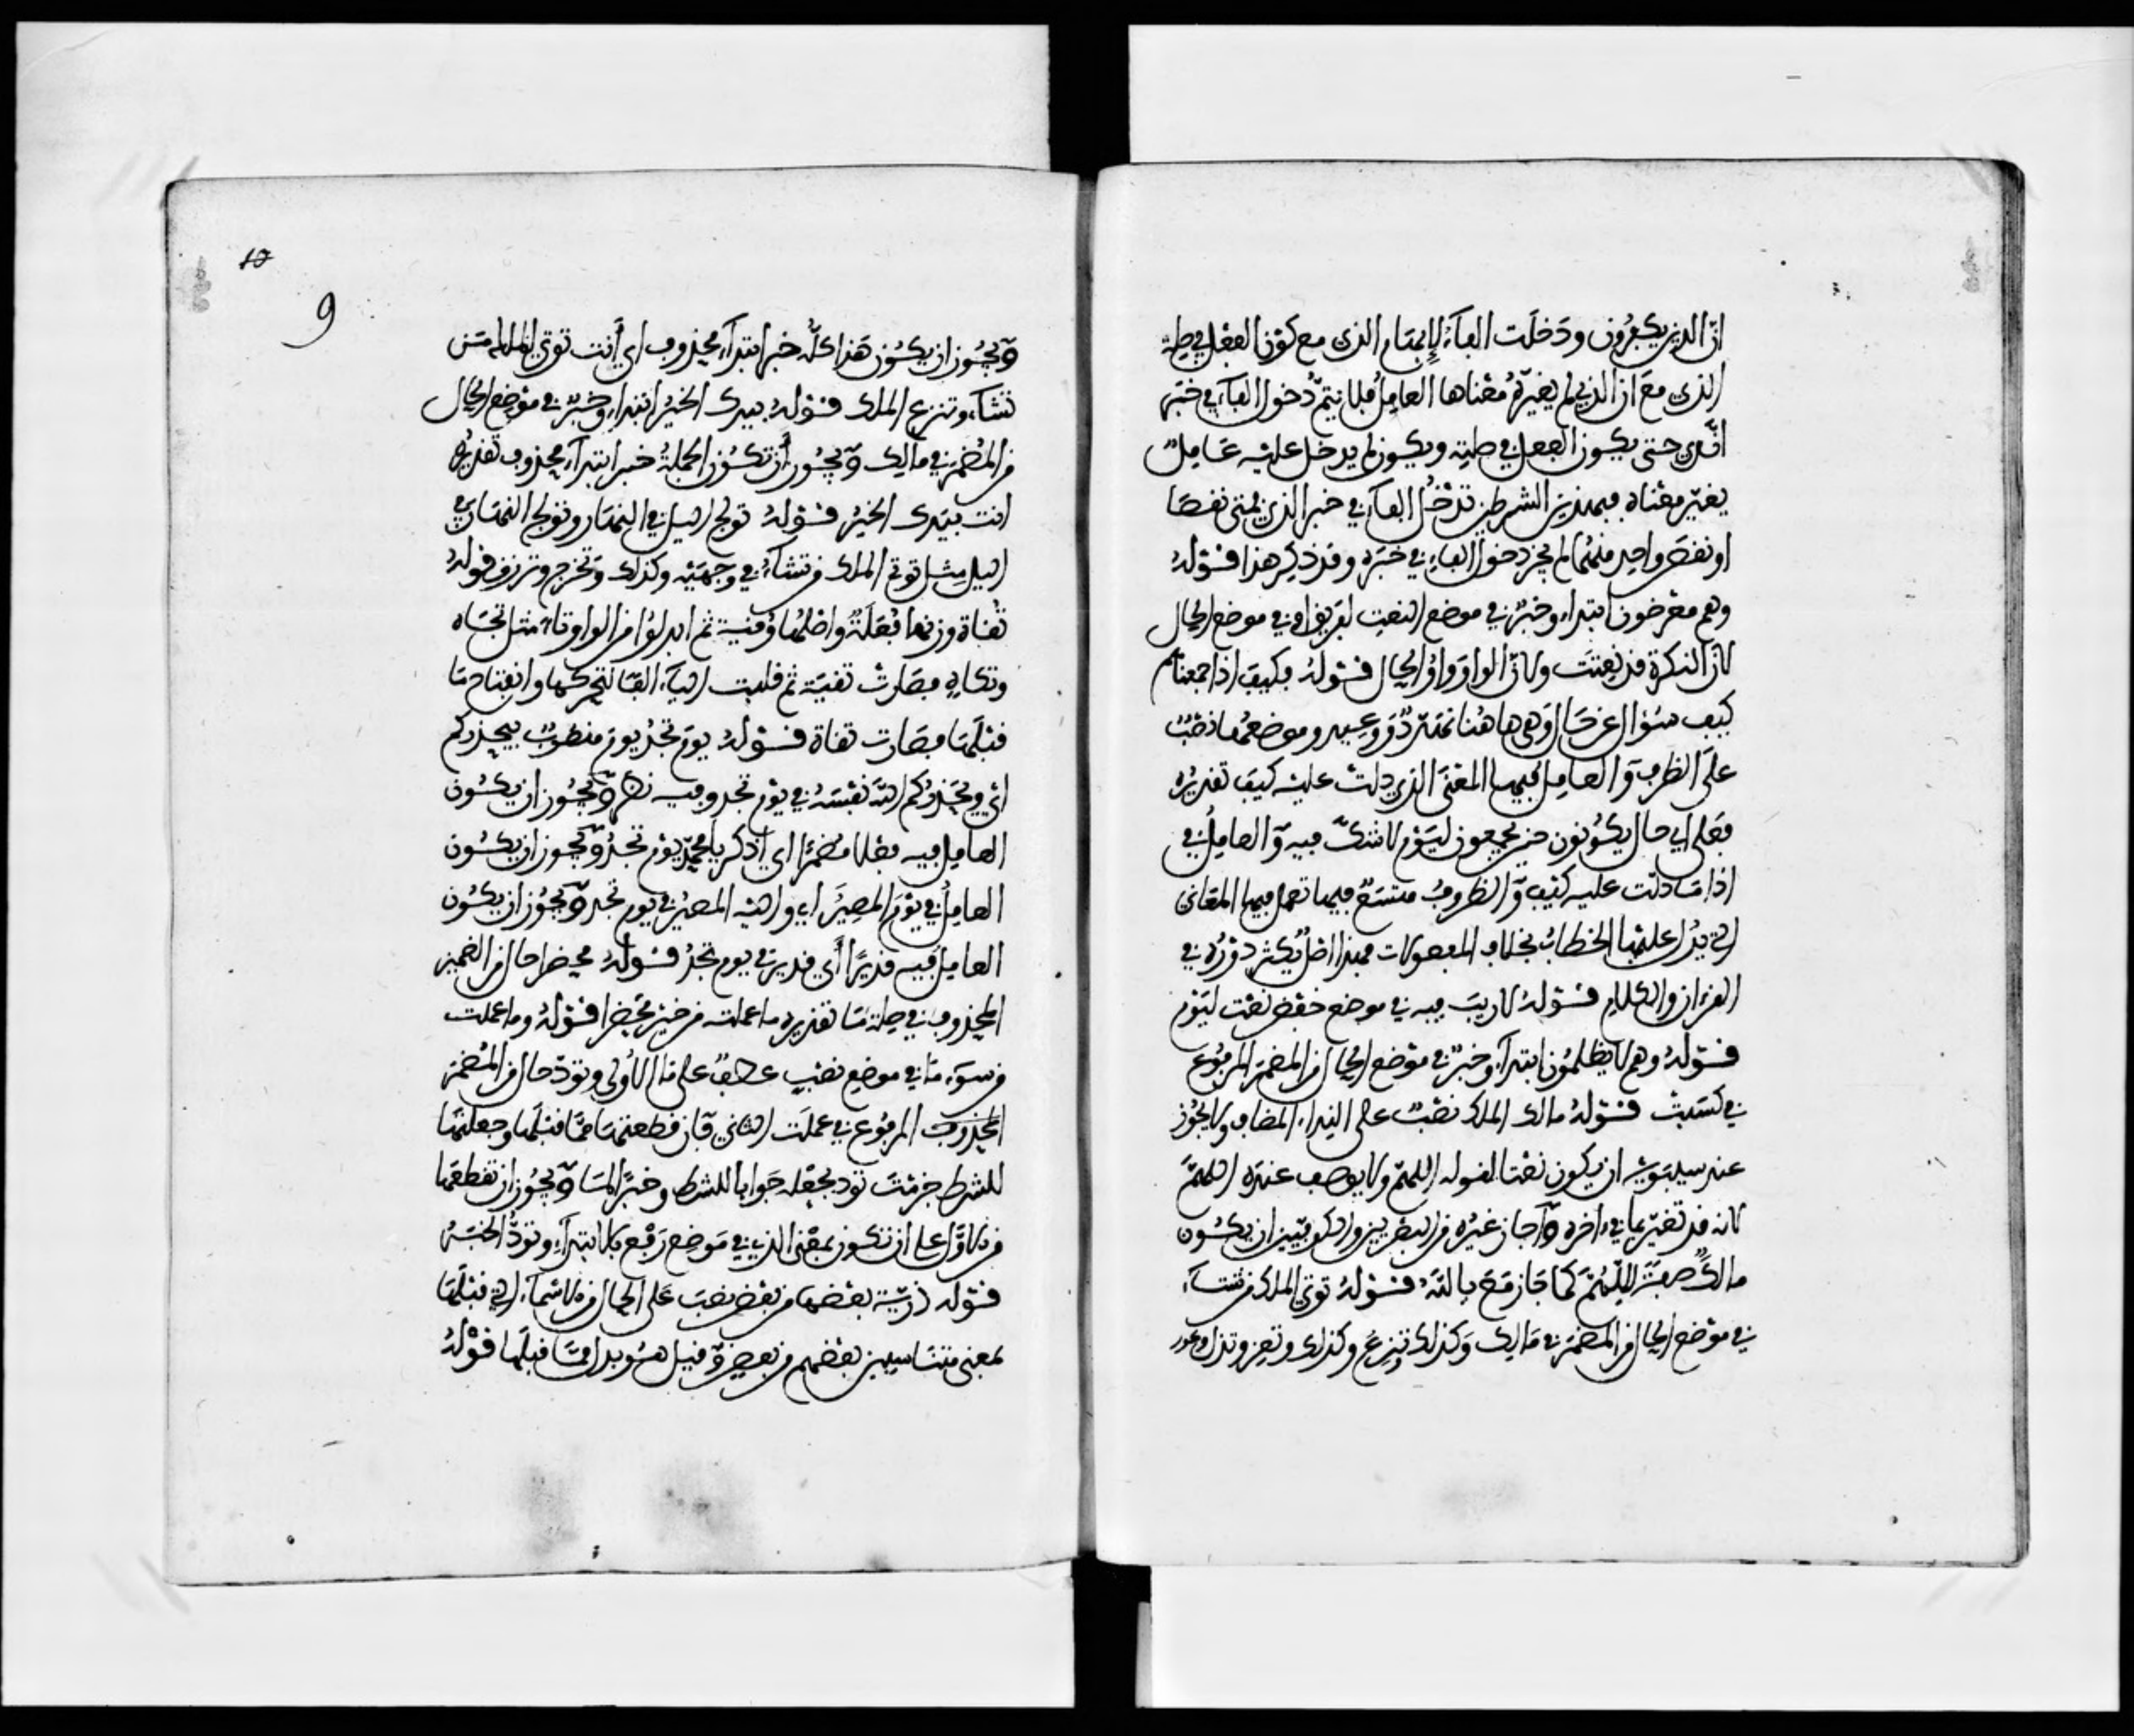 انّ الذين يكفرون ودخلت الفاء للإبهام الذى مع كون الفعل في صلة
الذى مع ان الذى لم يغيّر معناها العامل فلا يتمّ دخول الفاء في خبر
الذى حتى يكون الفعل في صلته ويكون لم يدخل عليه عامل
يغيّر معناه فبهذين الشرطين تدخل الفاء في خبر الذى فمتى نقصا
او نقص واحد منهما لم يجز دخول الفاء في خبره وقد ذكر هذا قوله
وهم معرضون ابتداء وخبر في موضع النعت لفريق او في موضع الحال
لان النكرة قد نعتت ولان الواو واو الحال قوله فكيف اذا جمعناهم
كيف سؤال عن حال وهى هاهنا تهدّد ووعيد وموضعها نصب
على الظرف والعامل فيها المعنى الذى دلت عليه كيف تقديره
فعلى اي حال يكونون حين يجمعون ليوم لا شكّ فيه والعامل في
اذا ما دلت عليه كيف والظروف متسع فيها تعمل فيها المعانى
التي يدل عليها الخطاب بخلاف المفعولات فهذا اصل يكثر دوره في
القرءان والكلام قوله لا ريب فيه في موضع خفض نعت ليوم
قوله وهم لا يظلمون ابتداء وخبر في موضع الحال من المضمر المرفوع
في كسبت قوله مالك الملك نصب على النداء المضاف ولا يجوز
عند سيبويه ان يكون نعتا لقوله اللهمّ ولا يوصف عنده اللهمّ
لانه قد تغيّر بما في ءاخره واجاز غيره من البصريين والكوفيين ان يكون
مالك صفة للّهُمّ كما جاز مع بالله قوله توتي الملك من تشاء
في موضع الحال من المضمر في مالك وكذلك وتنزع وكذلك وتعز وتذل
10
9
ويجوز ان يكون هذا كلّه خبر ابتداء محذوف اي أنت توتي الملك من
تشاء وتنزع الملك قوله بيدك الخير ابتداء وخبر في موضع الحال
من المضمر في مالك ويجوز أن تكون الجملة خبر ابتداء محذوف تقديره
انت بيدك الخير قوله تولج الليل في النهار وتولج النهار في
الليل مثل توتي الملك من تشاء في وجهيه وكذلك وتخرج وترزق قوله
تقاة وزنها فُعَلَة واصلها وقية ثم ابدلوا من الواو تاء مثل تجاه
وتكاة فصارت تقية ثم قلبت الياء الفا لتحركها وانفتاح ما
قبلها فصارت تقاة قوله يوم تجد يوم منصوب بيحذركم
اي ويحذركم الله نفسه في يوم تجد وفيه نظر ويجوز ان يكون
العامل فيه فعلا مضمرا اي اذكر يا محمد يوم تجد ويجوز ان يكون
العامل في يوم المصير اي والى الله المصير في يوم تجد ويجوز ان يكون
العامل فيه قديرا أي قدير في يوم تجد قوله محضرا حال من الضمير
المحذوف في صلة ما تقديره ما عملته من خير محضرا قوله وما عملت
من سوء ما في موضع نصب عطف على ما الاولى وتودّ حال من المضمر
المرفوع في عملت الثاني فان قطعتها مما قبلها وجعلتها
للشرط جزمت تود بجعله جوابا للشرط وخبرا لما ويجوز ان تقطعها
من الاول على ان تكون بمعنى الذي في موضع رفع بالابتداء وتودّ الخبر
قوله ذرية بعضها من بعض نصب على الحال من الاسماء التي قبلها
بمعنى متناسبين بعضهم من بعض وقيل هو بدل مما قبلها قوله